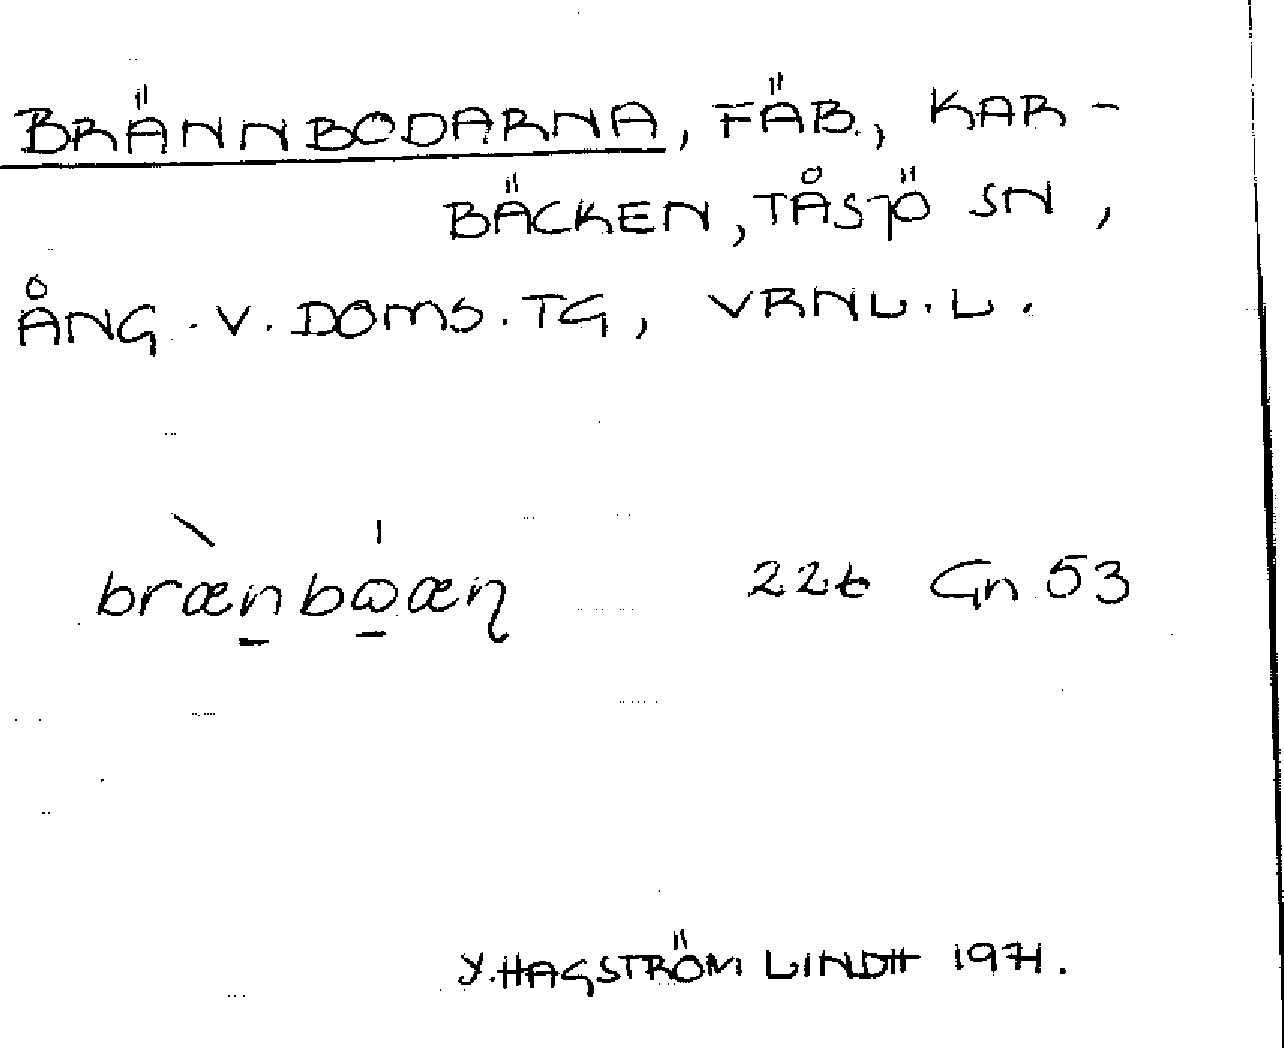 BRÄNNBODARNA, FÄB., KAR-
BÄCKEN, TÅSJÖ SN,
ÅNG. V. DOMS. TG, VRNL. L.
brænbωæn 22t Gn 53
Y. HAGSTRÖM LINDH 1971.